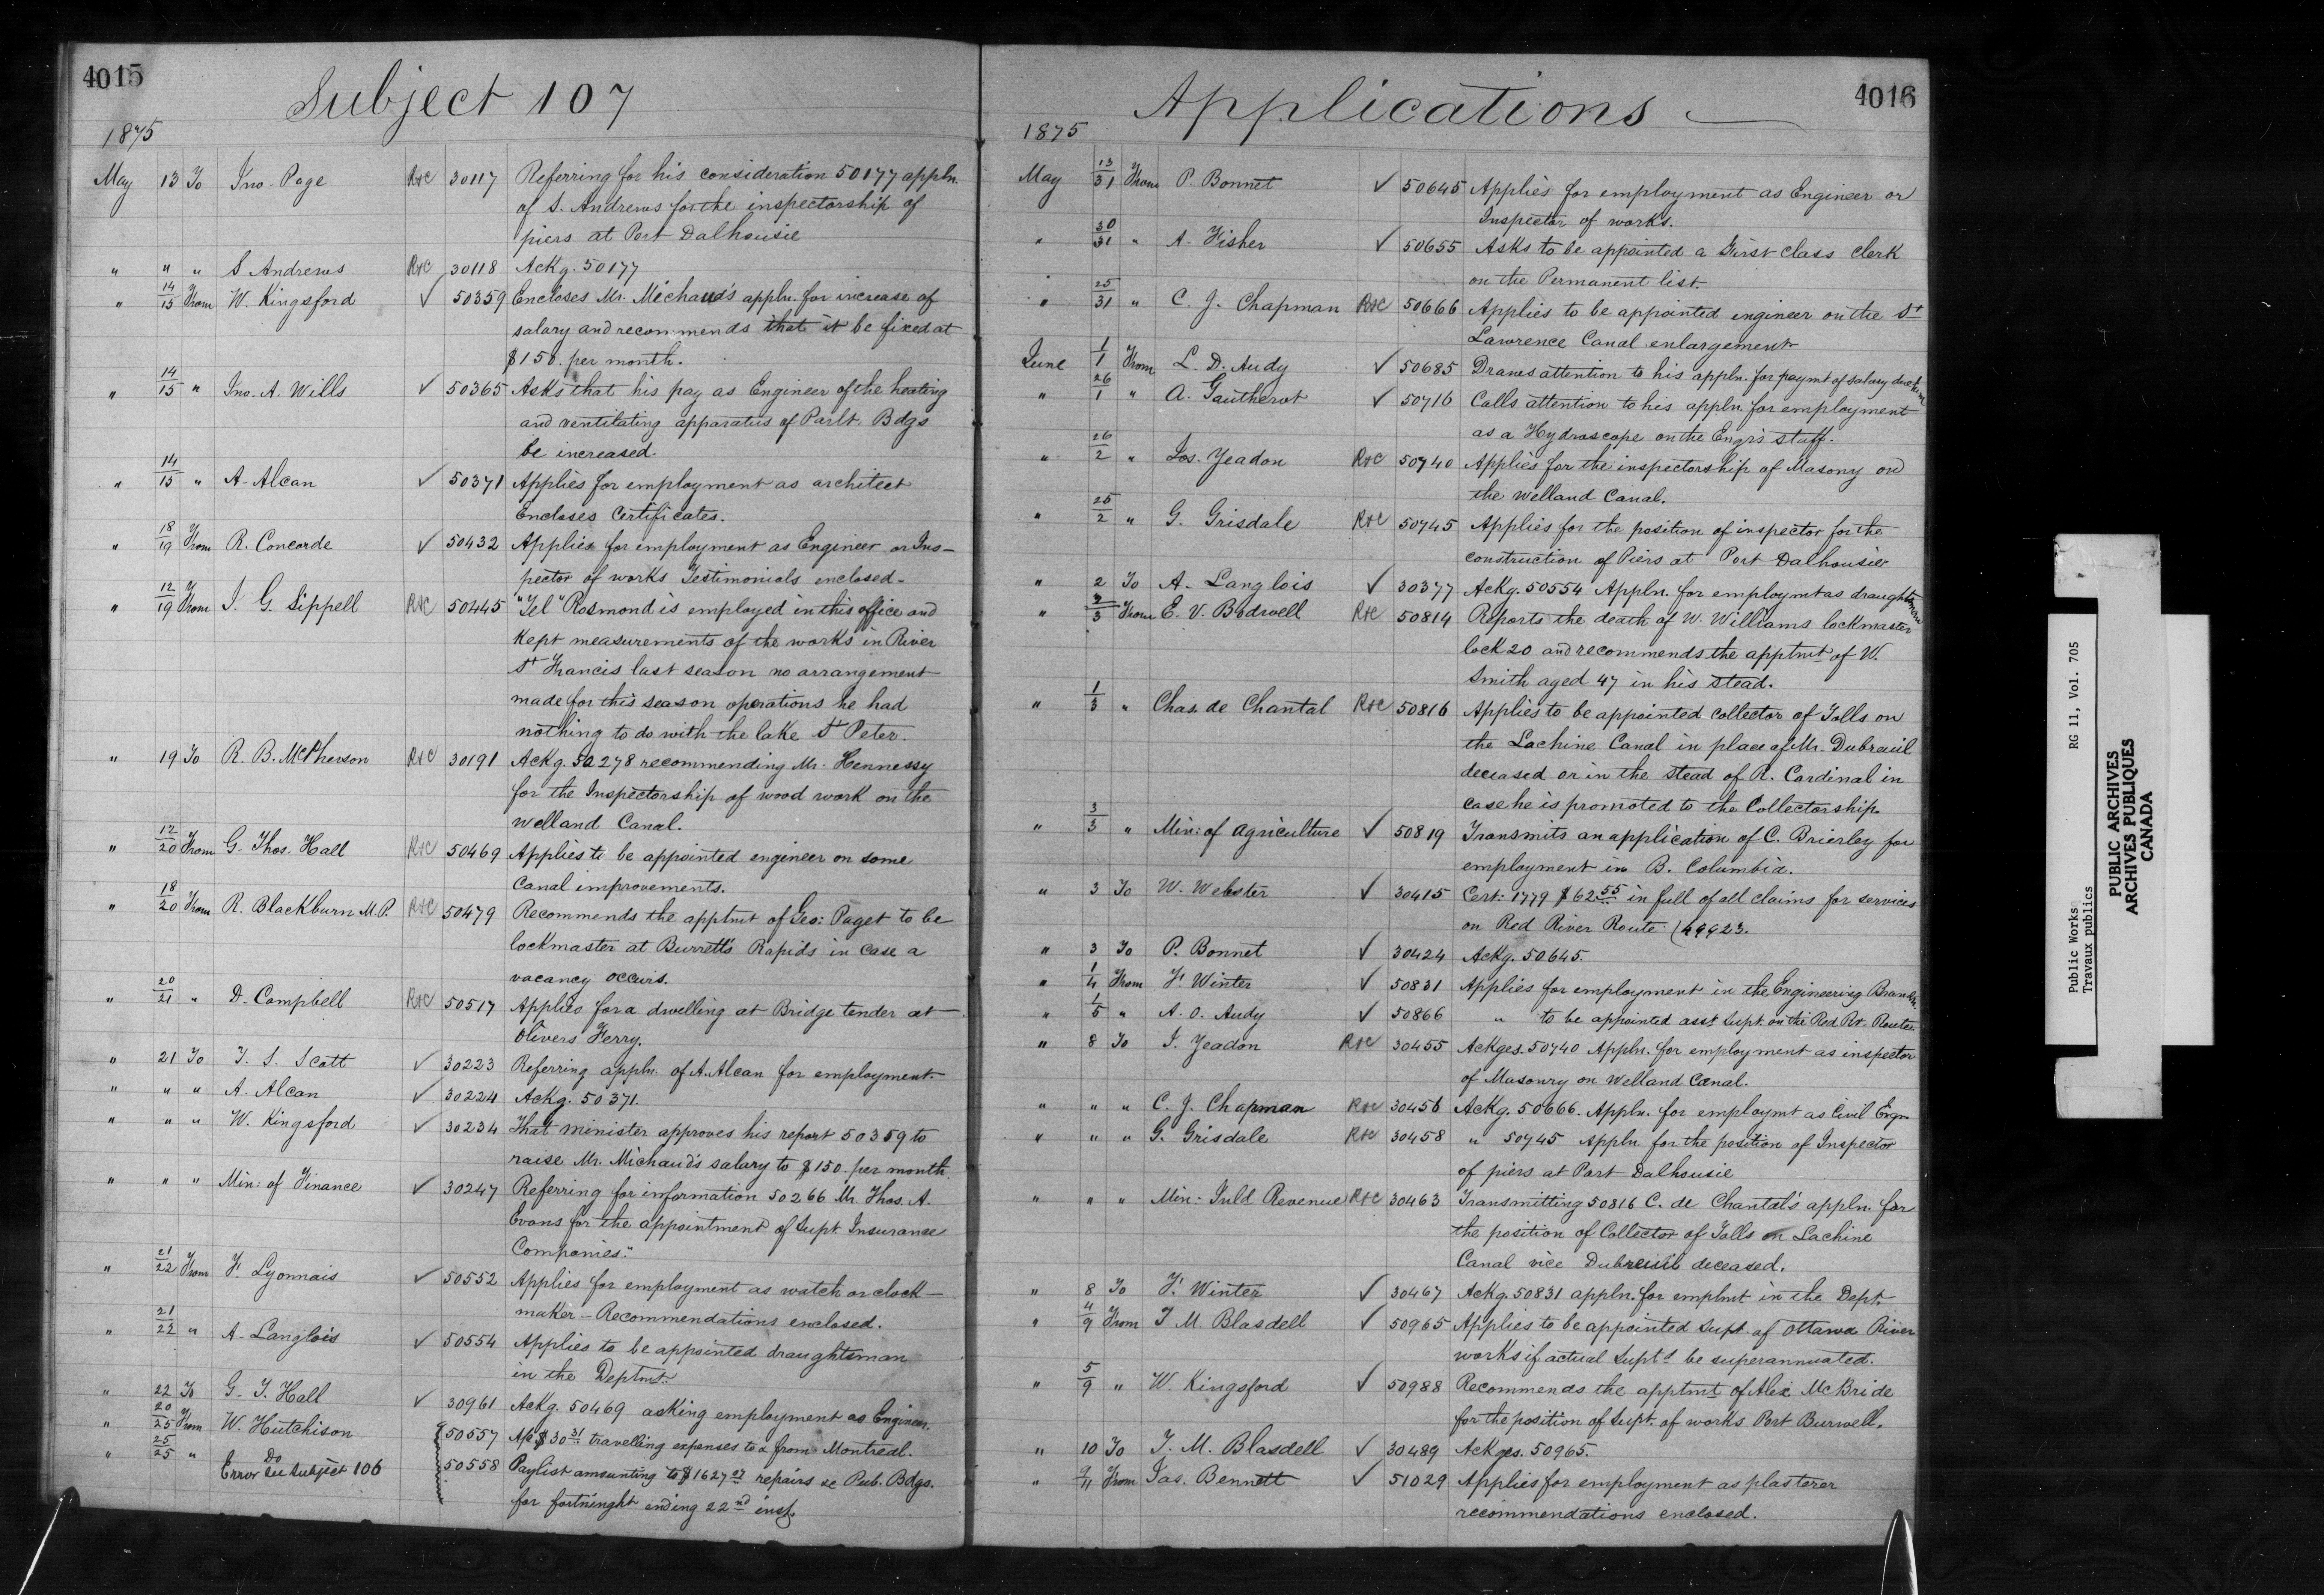 4015
Subject 107
1875
May 13 To Jno. Page R&C 30117 Referring for his consideration 50177 appln.
of S. Andrews for the inspectorship of
piers at Port Dalhousie
" " " S Andrews R&C 30118 Ackg. 50177
" 14/15 From W. Kingsford ✓ 50359 Encloses Mr. Michaud's appln. for increase of
salary and recommends that it be fixed at
$150. per month.
" 14/15 " Jno. A. Wills ✓ 50365 Asks that his pay as Engineer of the heating
and ventilating apparatus of Parlt. Bdgs
be increased.
" 14/15 " A. Alcan ✓ 50371 Applies for employment as architect
Encloses Certificates.
" 18/19 From R. Concorde ✓ 50432 Applies for employment as Engineer or Ins-
pector of works Testimonials enclosed-
" 12/19 From J. G. Sippell R&C 50445 "Tel" Rosmond is employed in this office and
kept measurements of the works in River
St Francis last season no arrangement
made for this season operations he had
nothing to do with the lake St Peter.
" 19 To R. B. McPherson R&C 30191 Ackg. 50278 recommending Mr. Hennessy
for the Inspectorship of wood work on the
Welland Canal.
" 12/20 From G. Thos. Hall R&C 50469 Applies to be appointed engineer on some
Canal improvements.
" 18/20 From R. Blackburn M.P. R&C 50479 Recommends the apptmt of Geo: Paget to be
lockmaster at Burrett's Rapids in case a
vacancy occurs.
" 20/21 " D. Campbell R&C 50517 Applies for a dwelling at Bridge tender at
Olivers Ferry.
" 21 To T. S. Scott ✓ 30223 Referring appln. of A. Alcan for employment.
" " " A. Alcan ✓ 30224 Ackg. 50371.
" " " W. Kingsford ✓ 30234 That minister approves his report 50359 to
raise Mr. Michaud's salary to $150. per month
" " " Min: of Finance ✓ 30247 Referring for information 50266 Mr. Thos. A.
Evans for the appointment of Supt. Insurance
Companies."
" 21/22 From F. Lyonnais ✓ 50552 Applies for employment as watch or clock-
maker - Recommendations enclosed.
" 21/22 " A. Langlois ✓ 50554 Applies to be appointed draughtsman
in the Deptmt.
" 22 To G. T. Hall ✓ 30961 Ackg. 50469 asking employment as Engineer.
" 20/25 From W. Hutchison 50557 A/c $30 31 travelling expenses to & from Montreal.
" 25/25 " Do 50558 Paylist amounting to $1627 27 repairs &c Pub. Bdgs.
Error See Subject 106
for fortninght ending 22nd inst.
4016
Applications
1875
May 13/31 From P. Bonnet ✓ 50645 Applies for employment as Engineer or
Inspector of works.
" 30/31 " A. Fisher ✓ 50655 Asks to be appointed a First Class Clerk
on the Permanent list.
" 25/31 " C. J. Chapman R&C 50666 Applies to be appointed engineer on the St
Lawrence Canal enlargement
June 1/1 From L. D. Audy ✓ 50685 Draws attention to his appln. for paymt of salary due him
" 26/1 " A. Gautherot ✓ 50716 Calls attention to his appln. for employment
as a Hydroscope on the Engr's staff.
" 26/2 " Jos. Yeadon R&C 50740 Applies for the inspectorship of Masonry on
the Welland Canal.
" 25/2 " G. Grisdale R&C 50745 Applies for the position of inspector for the
construction of Piers at Port Dalhousie
" 2 To A. Langlois ✓ 30377 Ackg. 50554 Appln. for employmt as draughtsman
" 2/3 From E. V. Bodwell R&C 50814 Reports the death of W. Williams lockmaster
lock 20 and recommends the apptmt of W.
Smith aged 47 in his stead.
" 1/3 " Chas. de Chantal R&C 50816 Applies to be appointed Collector of Tolls on
the Lachine Canal in place of Mr. Dubreuil
deceased or in the stead of R. Cardinal in
case he is promoted to the Collectorship.
" 3/3 " Min: of Agriculture ✓ 50819 Transmits an application of C. Brierley for
employment in B. Columbia.
" 3 To W. Webster ✓ 30415 Cert: 1779 $62 55 in full of all claims for services
on Red River Route (49923.
" 3 To P. Bonnet ✓ 30424 Ackg. 50645.
" 1/4 From F. Winter ✓ 50831 Applies for employment in the Engineering Branch.
" 1/5 " A. O. Audy ✓ 50866 " to be appointed asst Supt. on the Red Rr. Route
" 8 To J. Yeadon R&C 30455 Ackges. 50740 Appln. for employment as inspector
of Masonry on Welland Canal.
" " " C. J. Chapman R&C 30456 Ackg. 50666. Appln. for employmt as Civil Engr
" " " G. Grisdale R&C 30458 " 50745 Appln for the position of Inspector
of piers at Port Dalhousie
" " " Min: Inld Revenue R&C 30463 Transmitting 50816 C. de Chantal's appln. for
the position of Collector of Tolls on Lachine
Canal vice Dubreuil deceased.
" 8 To F. Winter ✓ 30467 Ackg. 50831 appln. for emplmt in the Dept.
" 4/9 From T M Blasdell ✓ 50965 Applies to be appointed Supt. of Ottawa River
works if actual Supt. be superannuated.
" 5/9 " W. Kingsford ✓ 50988 Recommends the apptmt of Alex McBride
for the position of Supt. of works Port Burwell.
" 10 To T. M. Blasdell ✓ 30489 Ackges. 50965.
" 9/11 From Jas. Bennett ✓ 51029 Applies for employment as plasterer
recommendations enclosed.
Public Works
Travaux publics
RG 11, Vol. 705
PUBLIC ARCHIVES
ARCHIVES PUBLIQUES
CANADA